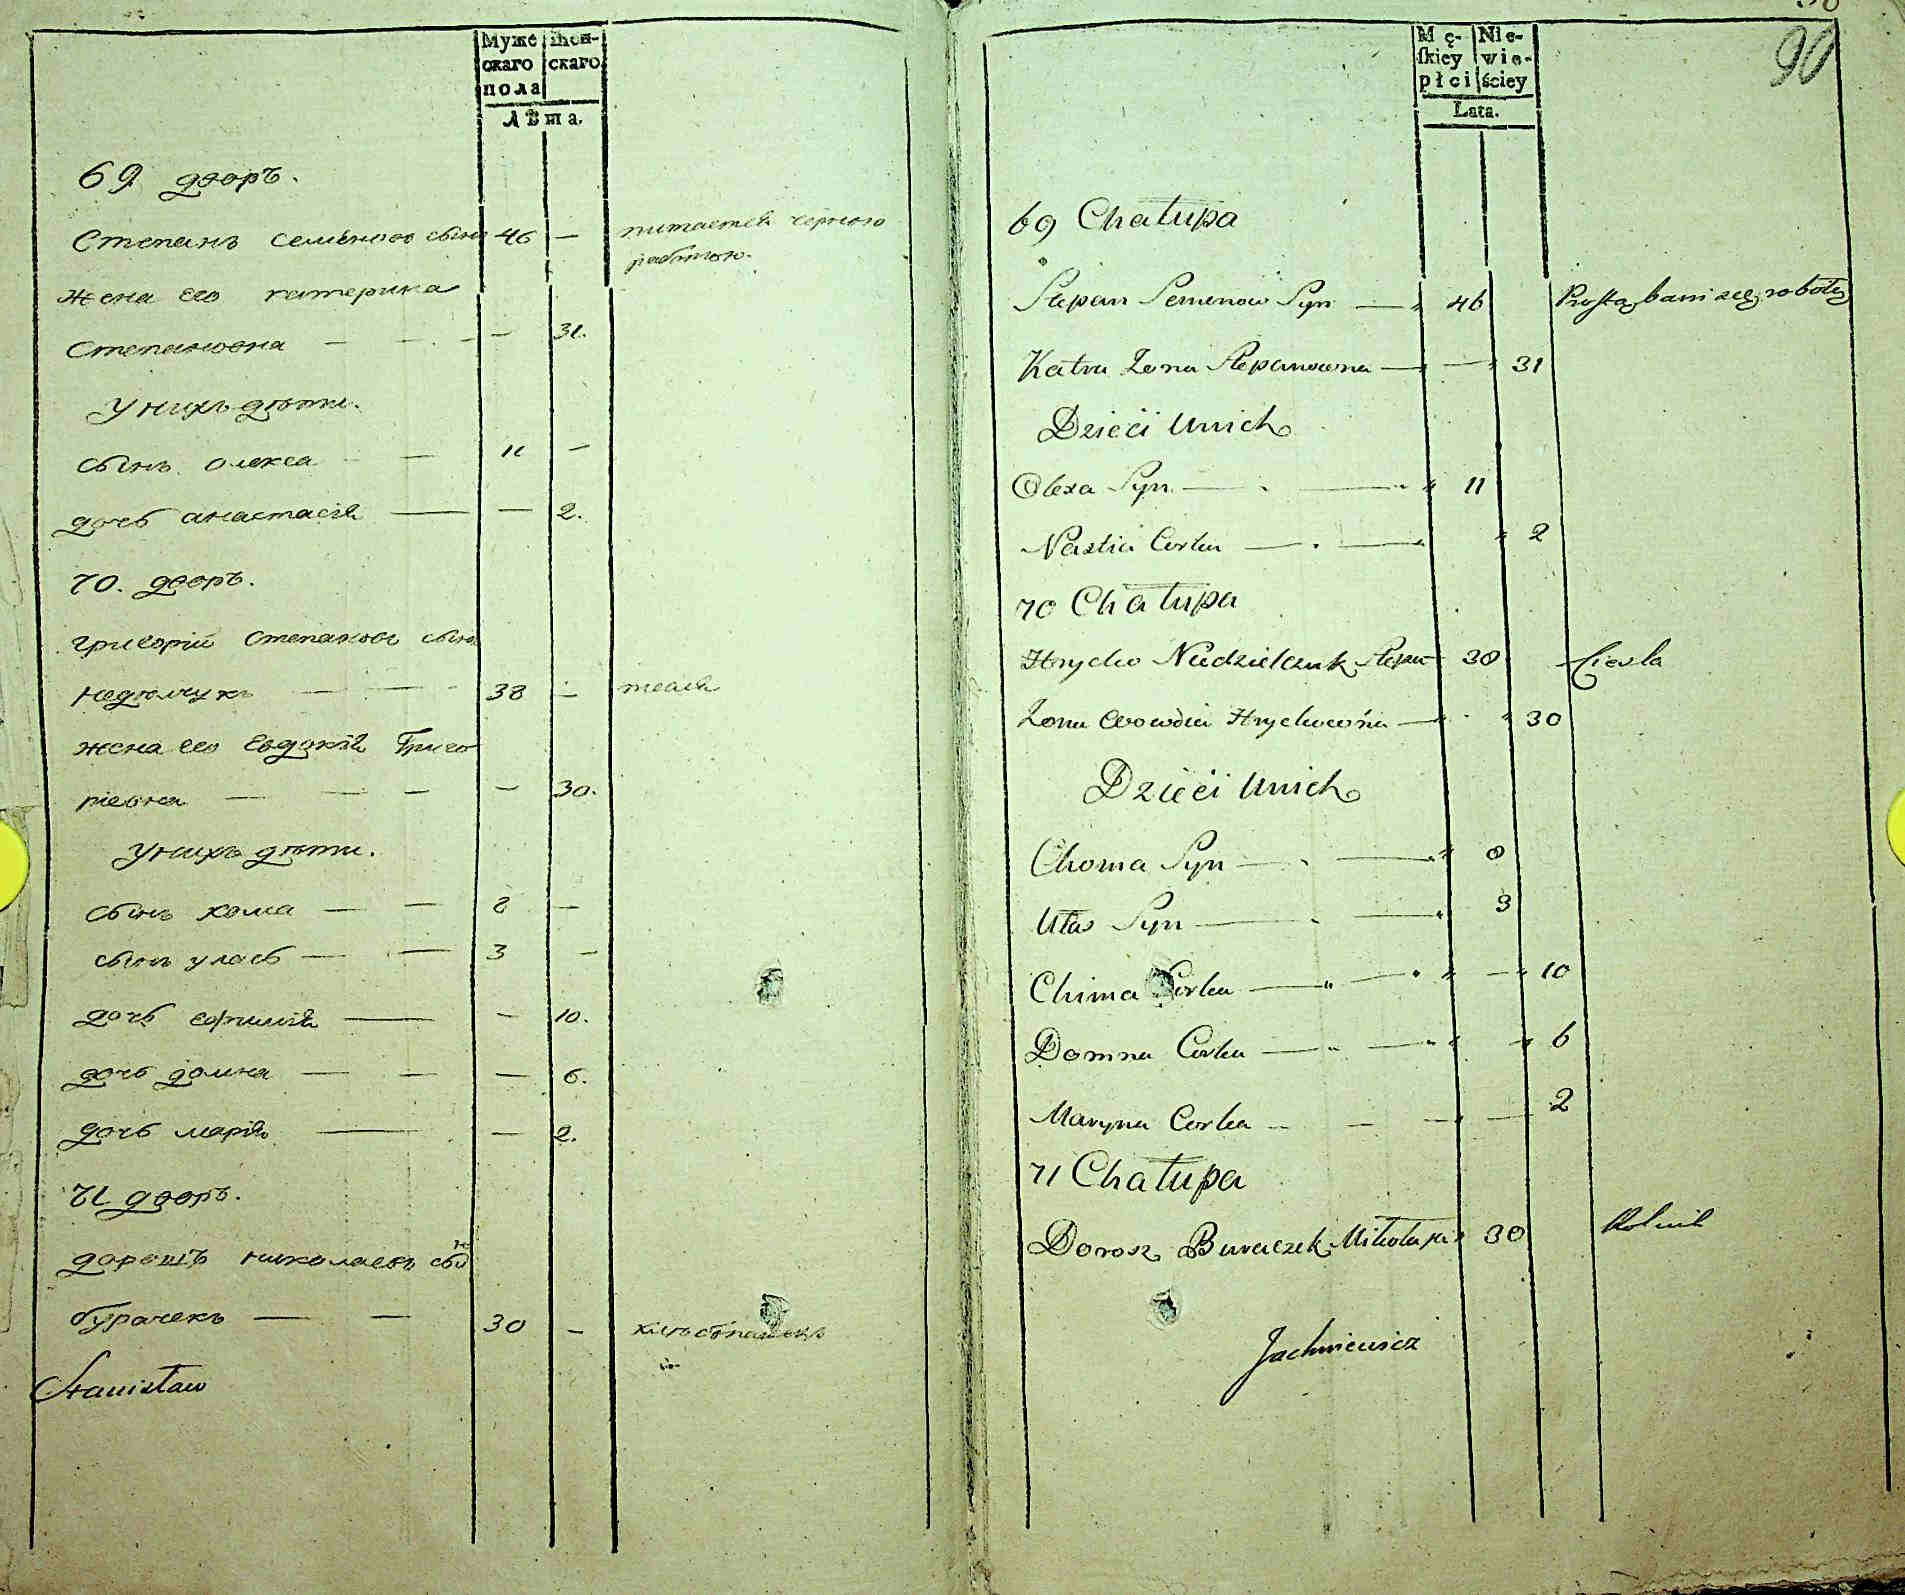 Муже
скаго
пола
Жен-
скаго
Лѣта.
69 дворъ.
Степанъ Семеновъ сынъ 46 — питается черною
работою.
жена его катерина
Степановна — — — 31.
У нихъ дѣти.
сынъ олекса — — 11 —
дочь анастасія — — 2.
70. дворъ.
григорій Степановъ сынъ
недѣлчукъ — — 38 — тесля
жена его Евдокія Григо
ріевна — — — — 30.
У нихъ дѣти.
сынъ хома — — 8 —
сынъ уласъ — — 3 —
дочь — — 10.
дочь домна — — — 6.
дочь марія — — 2.
71 дворъ.
дорошъ николаевъ сынъ
бурачекъ — — 30 —
Stanisław
90
Mę-
skiey
płci
Nie-
wie-
ściey
Lata.
69 Chałupa
Stepan Semenow Syn — 46 Prostą bawi się robotą
Katra Żona Stepanowna — — 31
Dzieci unich
Olexa Syn — — 11
Nastia Corka — — 2
70 Chałupa
Hrycko Niedzielczuk Stepa 38 Ciesla
Żona Ewwdia Hryckowna — 30
Dzieci unich
Choma Syn — — 8
Ułas Syn — — 3
Chima Corka — — — 10
Domna Corka — — 6
Maryna Corka — — — — 2
71 Chałupa
Dorosz Buraczek Mikołaiw 30 Rolnik
Jachniewicz